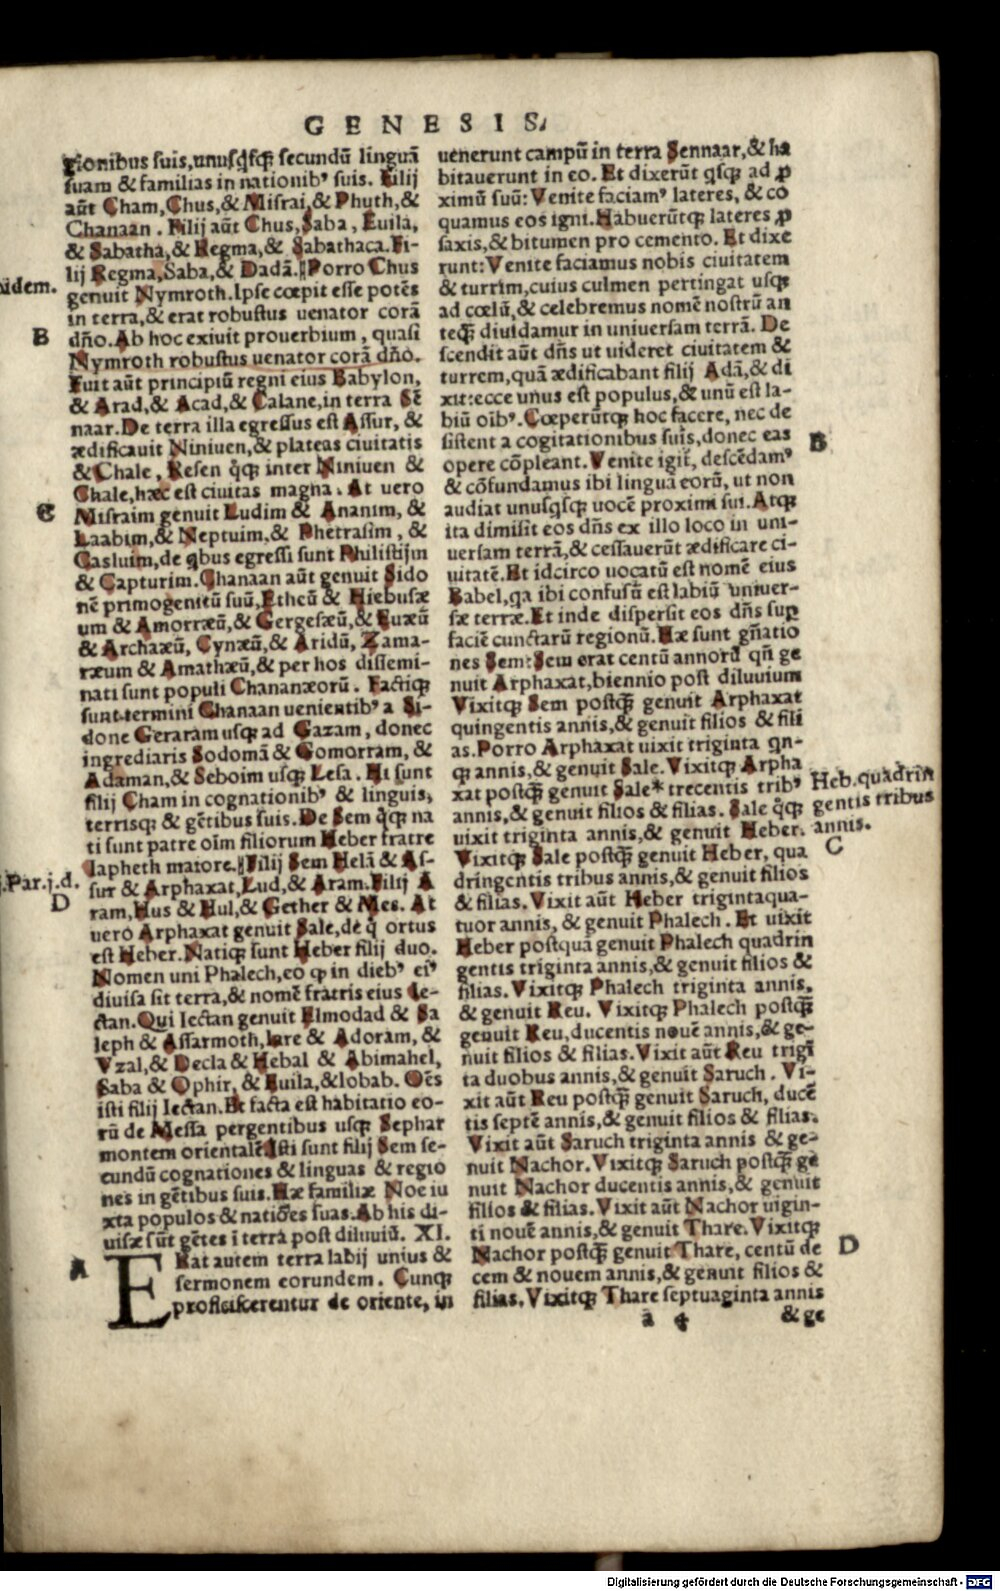 GENESIS,
tionibus suis, unusq̃sq; secundũ linguã
suam & familias in nationibꝰ suis. Filij
aũt Cham, Chus, & Misrai, & Phuth, &
Chanaan. Filij aũt Chus, Saba, Euila,
& Sabatha, & Regma, & Sabathaca. Fi-
lij Regma, Saba, & Dadã. Porro Chus
genuit Nymroth. Ipse cœpit esse potẽs
in terra, & erat robustus uenator corã
dño. Ab hoc exiuit prouerbium, quasi
Nymroth robustus uenator corã dño.
Fuit aũt principiũ regni eius Babylon,
& Arad, & Acad, & Calane, in terra Sẽ
naar. De terra illa egressus est Assur, &
ædificauit Niniuen, & plateas ciuitatis
& Chale, Resen q̃q; inter Niniuen &
Chale, hæc est ciuitas magna. At uero
Misraim genuit Ludim & Ananim, &
Laabim, & Neptuim, & Phetrasim, &
Casluim, de qbus egressi sunt Philistijm
& Capturim. Chanaan aũt genuit Sido
nẽ primogenitũ suũ, Etheũ & Hiebusæ
um & Amorræũ, & Gergesæũ, & Euæũ
& Archaæũ, Cynæũ, & Aridũ, Zama-
ræum & Amathæũ, & per hos dissemi-
nati sunt populi Chananæorũ. Factiq;
sunt termini Chanaan uenientibꝰ a Si-
done Geraram usq; ad Gazam, donec
ingrediaris Sodomã & Gomorram, &
Adaman, & Seboim usq; Lesa. Hi sunt
filij Cham in cognationibꝰ & linguis,
terrisq; & gẽtibus suis. De Sem q̃q; na
ti sunt patre oĩm filiorum Heber fratre
Iapheth maiore. Filij Sem Helã & As-
sur & Arphaxat, Lud, & Aram. Filij A
ram, Hus & Hul, & Gether & Mes. At
uero Arphaxat genuit Sale, de q̃ ortus
est Heber. Natiq; sunt Heber filij duo.
Nomen uni Phalech, eo ꝙ in diebꝰ eiꝰ
diuisa sit terra, & nomẽ fratris eius Ie-
ctan. Qui Iectan genuit Elmodad & Sa
leph & Assarmoth, Iare & Adoram, &
Vzal, & Decla & Hebal & Abimahel,
Saba & Ophir, & Euila, & Iobab. Oẽs
isti filij Iectan. Et facta est habitatio eo-
rũ de Messa pergentibus usq; Sephar
montem orientalẽ. Isti sunt filij Sem se-
cundũ cognationes & linguas & regio
nes in gẽtibus suis. Hæ familiæ Noe iu
xta populos & natiões suas. Ab his di-
uisæ sũt gẽtes ĩ terra post diluuiũ. XI.
ERat autem terra labij unius &
sermonem eorundem. Cunq;
proficiscerentur de oriente, in
uidem.
B
C
j. Par. j. d.
D
A
uenerunt campũ in terra Sennaar, & ha
bitauerunt in eo. Et dixerũt qsq; ad ꝓ
ximũ suũ: Venite faciamꝰ lateres, & co
quamus eos igni. Habuerũtq; lateres ꝓ
saxis, & bitumen pro cemento. Et dixe
runt: Venite faciamus nobis ciuitatem
& turrim, cuius culmen pertingat usq;
ad cœlũ, & celebremus nomẽ nostrũ an
teq̃; diuidamur in uniuersam terrã. De
scendit aũt dñs ut uideret ciuitatem &
turrem, quã ædificabant filij Adã, & di
xit: ecce unus est populus, & unũ est la-
biũ oĩbꝰ. Cœperũtq; hoc facere, nec de
sistent a cogitationibus suis, donec eas
opere cõpleant. Venite igit̃, descẽdamꝰ
& cõfundamus ibi linguã eorũ, ut non
audiat unusqsq; uocẽ proximi sui. Atq;
ita dimisit eos dñs ex illo loco in uni-
uersam terrã, & cessauerũt ædificare ci-
uitatẽ. Et idcirco uocatũ est nomẽ eius
Babel, qa ibi confusũ est labiũ uniuer-
sæ terræ. Et inde dispersit eos dñs suꝑ
faciẽ cunctarũ regionũ. Hæ sunt gñatio
nes Sem: Sem erat centũ annorũ qñ ge
nuit Arphaxat, biennio post diluuium
Vixitq; Sem postq̃; genuit Arphaxat
quingentis annis, & genuit filios & fili
as. Porro Arphaxat uixit triginta qn-
q; annis, & genuit Sale. Vixitq; Arpha
xat postq̃; genuit Sale* trecentis tribꝰ
annis, & genuit filios & filias. Sale q̃q;
uixit triginta annis, & genuit Heber.
Vixitq; Sale postq̃; genuit Heber, qua
dringentis tribus annis, & genuit filios
& filias. Vixit aũt Heber trigintaqua-
tuor annis, & genuit Phalech. Et uixit
Heber postquã genuit Phalech quadrin
gentis triginta annis, & genuit filios &
filias. Vixitq; Phalech triginta annis,
& genuit Reu. Vixitq; Phalech postq̃;
genuit Reu, ducentis nouẽ annis, & ge-
nuit filios & filias. Vixit aũt Reu trigĩ
ta duobus annis, & genuit Saruch. Vi-
xit aũt Reu postq̃; genuit Saruch, ducẽ
tis septẽ annis, & genuit filios & filias.
Vixit aũt Saruch triginta annis & ge-
nuit Nachor. Vixitq; Saruch postq̃; ge
nuit Nachor ducentis annis, & genuit
filios & filias. Vixit aũt Nachor uigin-
ti nouẽ annis, & genuit Thare. Vixitq;
Nachor postq̃; genuit Thare, centũ de
cem & nouem annis, & genuit filios &
filias. Vixitq; Thare septuaginta annis
B
Heb. quadrin
gentis tribus
annis.
C
D
a 4 & ge
Digitalisierung gefördert durch die Deutsche Forschungsgemeinschaft - DFG